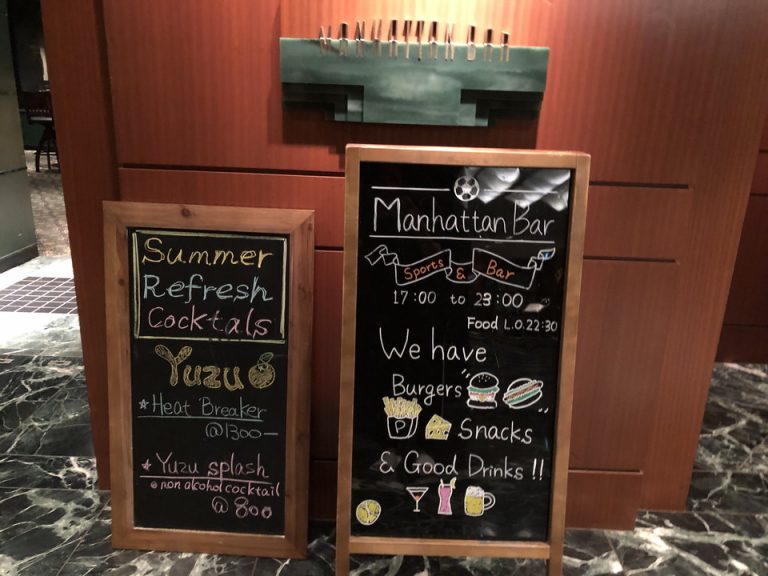 MANHATTAN BAR
Summer
Refresh
Cocktals
Yuzu
Heat Breaker
@1300-
Yuzu splash
non alcohol cocktail
@800
Manhattan Bar
Sports & Bar
17:00 to 23:00
Food L.O.22:30
We have
Burgers
P
Snacks
& Good Drinks !!